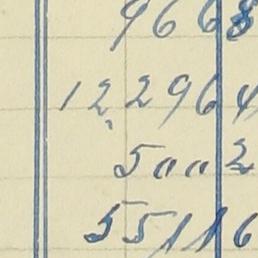 9668
122964
5002
55116